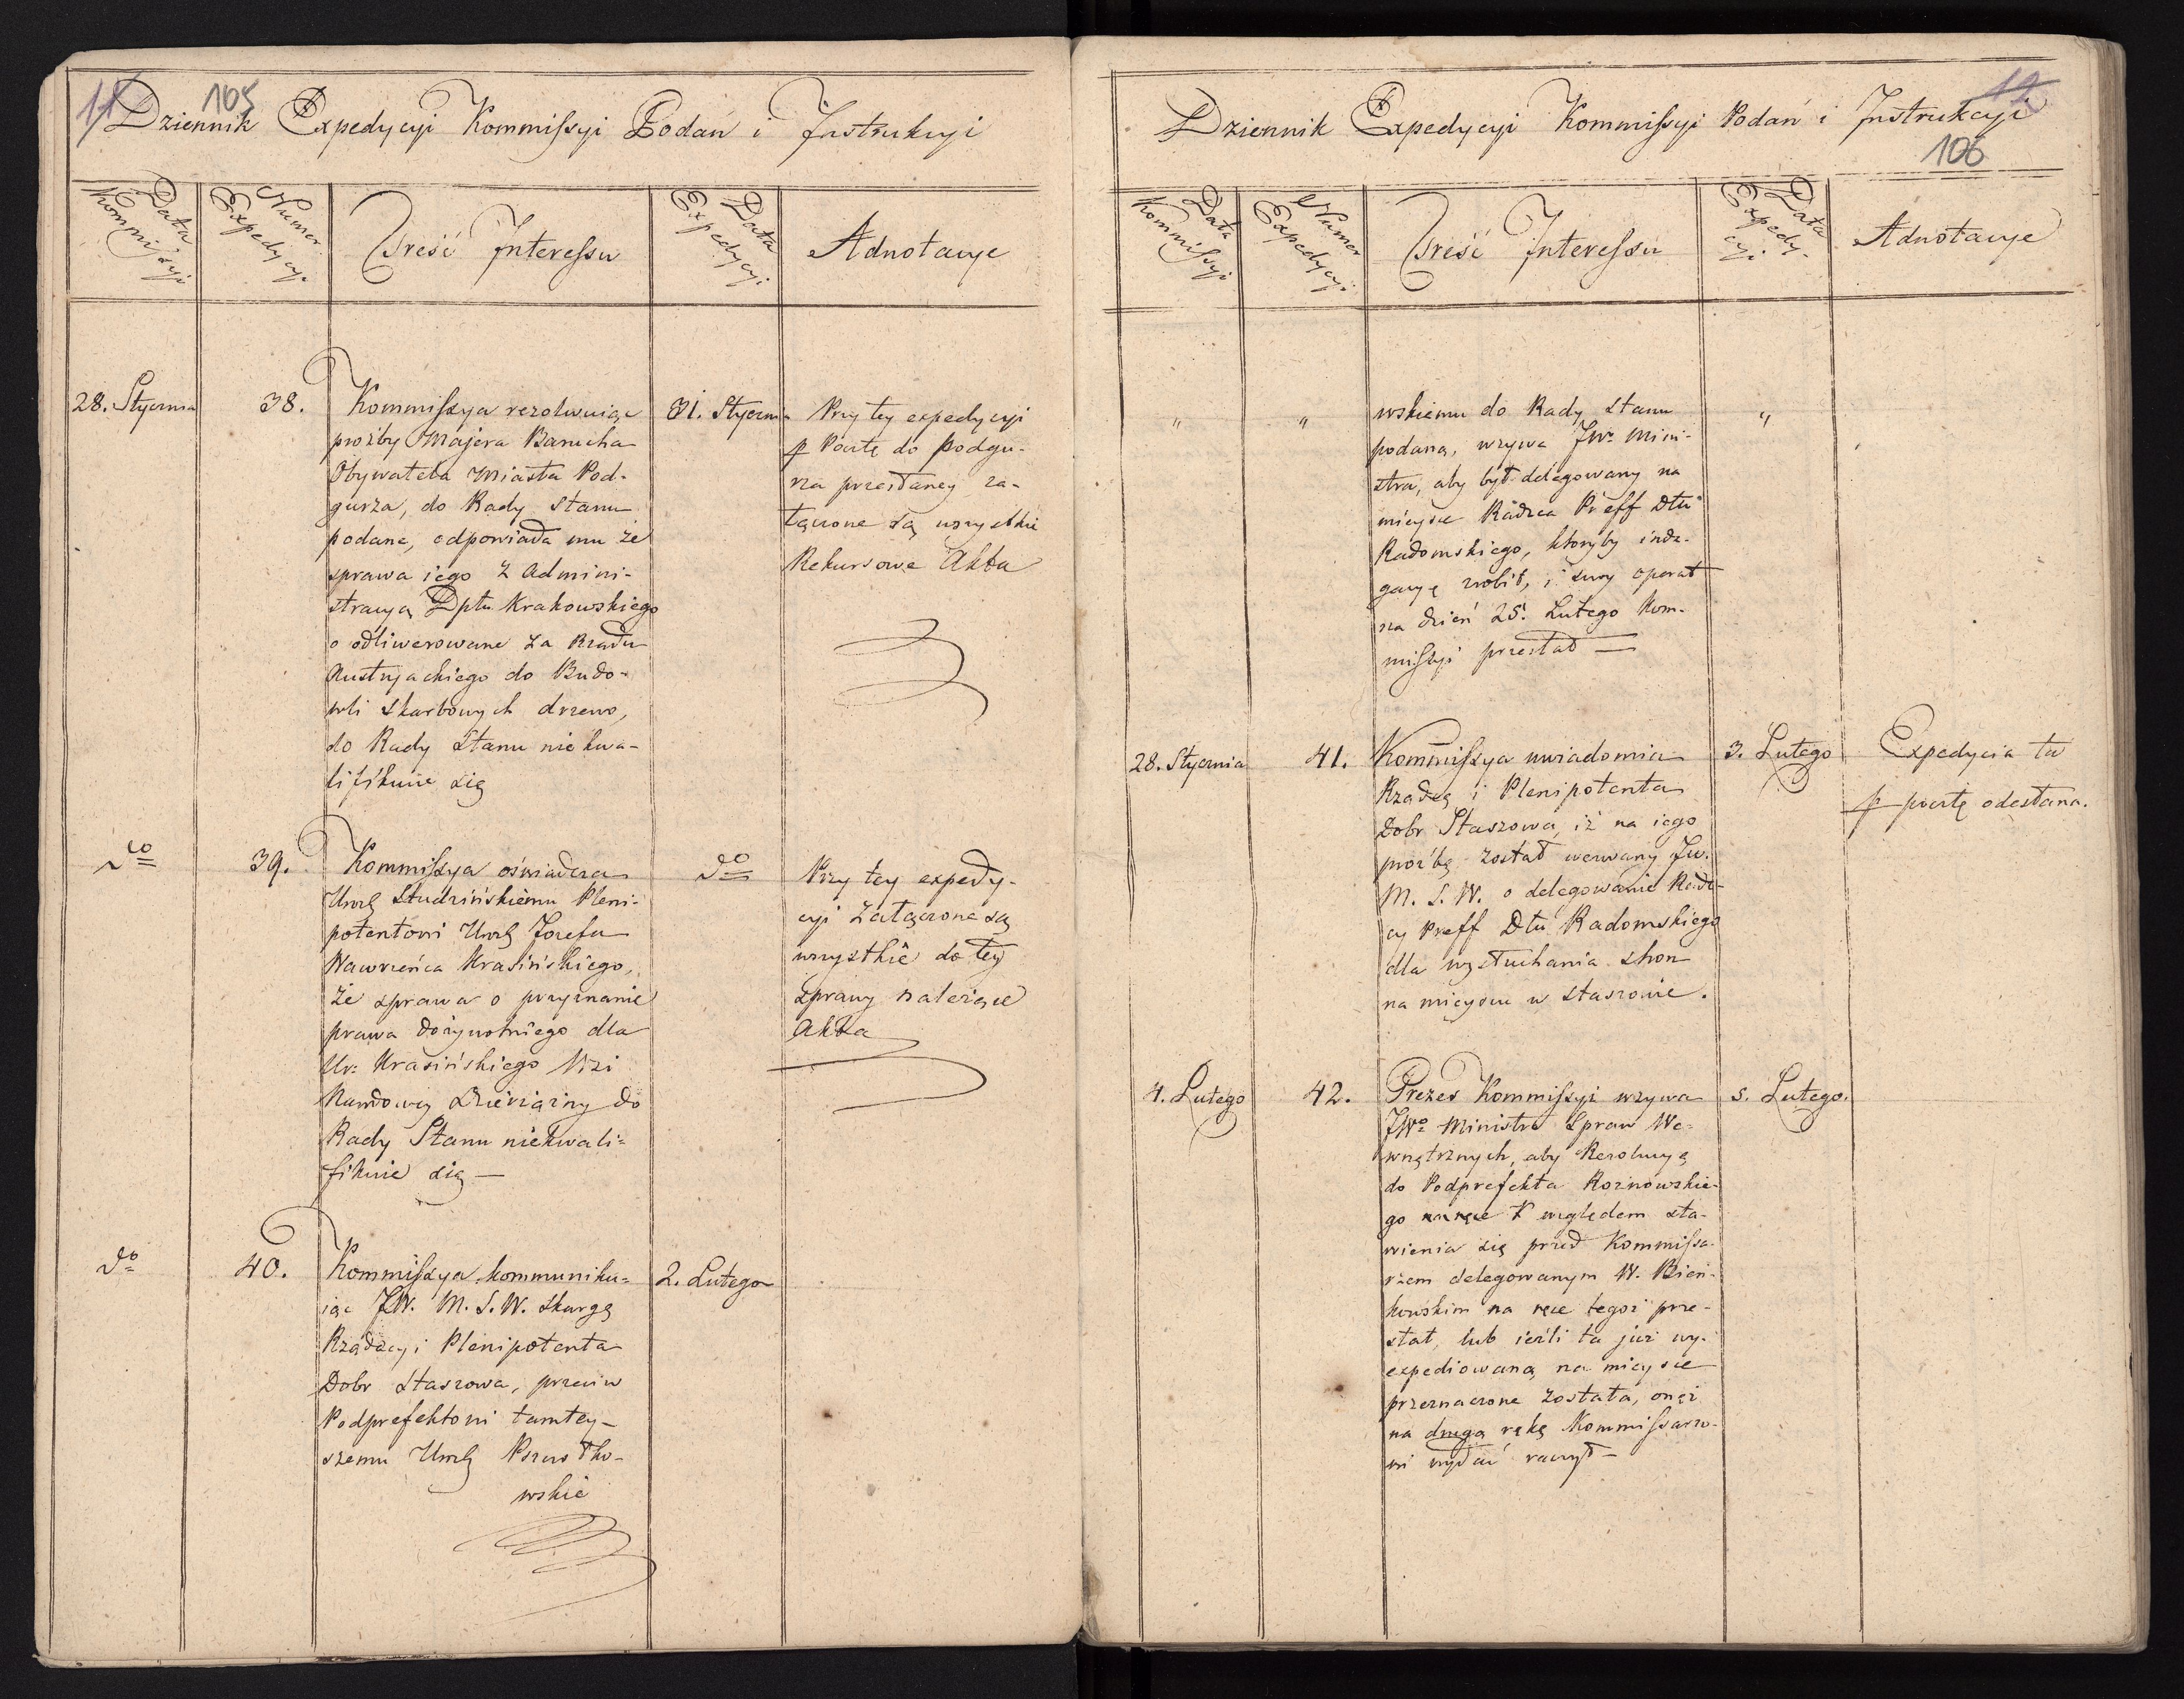 11 105
Dziennik Expedycyi Kommissyi Podań i Instrukcyi
Data Kommissyi
Numer Expedycyi
Treść Interessu
Data Expedycyi
Adnotacye
28. Stycznia
38.
Kommissya rezolwuiąc
proźby Majera Barucha
Obywatela Miasta Pod-
gurza, do Rady Stanu
podane, odpowiada mu że
sprawa iego z Admini-
stracyą Dptu Krakowskiego
o odliwerowane za Rządu
Austryackiego do Budo-
wli skarbowych drzewo,
do Rady Stanu nie kwa-
lifikuie się
31. Stycznia
Przy tey expedycyi
p Pocztę do Podgu-
rza przesłaney za-
łączone są wszystkie
Rekursowe Akta
do
39.
Kommissya oświadcza
Urmu Studzińskiemu Pleni-
potentowi Urgo Jozefa
Wawrzeńca Krasińskiego,
że sprawa o przyznanie
prawa dożywotniego dla
Ur: Krasińskiego Wsi
Narodowey Dzieriązny do
Rady Stanu niekwali-
fikuie się —
do
Przy tey expedy-
cyi załączone są
wszystkie do tey
sprawy należące
Akta
do
40.
Kommissya kommuniku-
iąc JW. M. S. W. skargę
Rządzcy i Plenipotenta
Dobr Staszowa, przeciw
Podprefektowi tamtey-
szemu
wskie
2. Lutego
12
Dziennik Expedycyi Kommissyi Podań i Instrukcyi
106
Data Kommissyi
Numer Expedycyi
Treść Interessu
Data Expedy-
cyi
Adnotacye
"
"
wskiemu do Rady Stanu
podaną, wzywa JWo Mini-
stra, aby był delegowany na
mieysce Radzca Preff Dtu
Radomskiego, ktoryby inda-
gacyę zrobił, i swoy operat
na dzień 25. Lutego Kom-
missyi przesłał —
"
28. Stycznia
41.
Kommissya uwiadomia
Rządcę i Plenipotenta
Dobr Staszowa, iż na iego
proźbę został wezwany JW.
M. S. W. o delegowanie Radz-
cy Preff Dtu Radomskiego
dla wysłuchania stron
na mieyscu w Staszowie.
3. Lutego
Expedycia ta
p pocztę odesłana.
4. Lutego
42.
Prezes Kommissyi wzywa
JWo Ministra Spraw We-
wnętrznych, aby Rezolucyę
do Podprefekta Roznowskie-
go względem sta-
wienia się przed Kommissa-
rzem delegowanym W. Bień-
kowskim na ręce tegoż prze-
słał, lub ieźli ta już wy-
expediowaną na mieysce
przeznaczone została, onęż
na drugą rękę Kommissarzo-
wi wydać raczył —
5. Lutego.